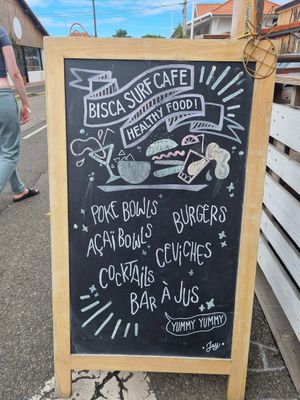 BISCA SURF CAFE
HEALTHY FOOD!
POKE BOWLS
BURGERS
AÇAÏ BOWLS
CEVICHES
COCKTAILS
BAR À JUS
YUMMY YUMMY
Joy